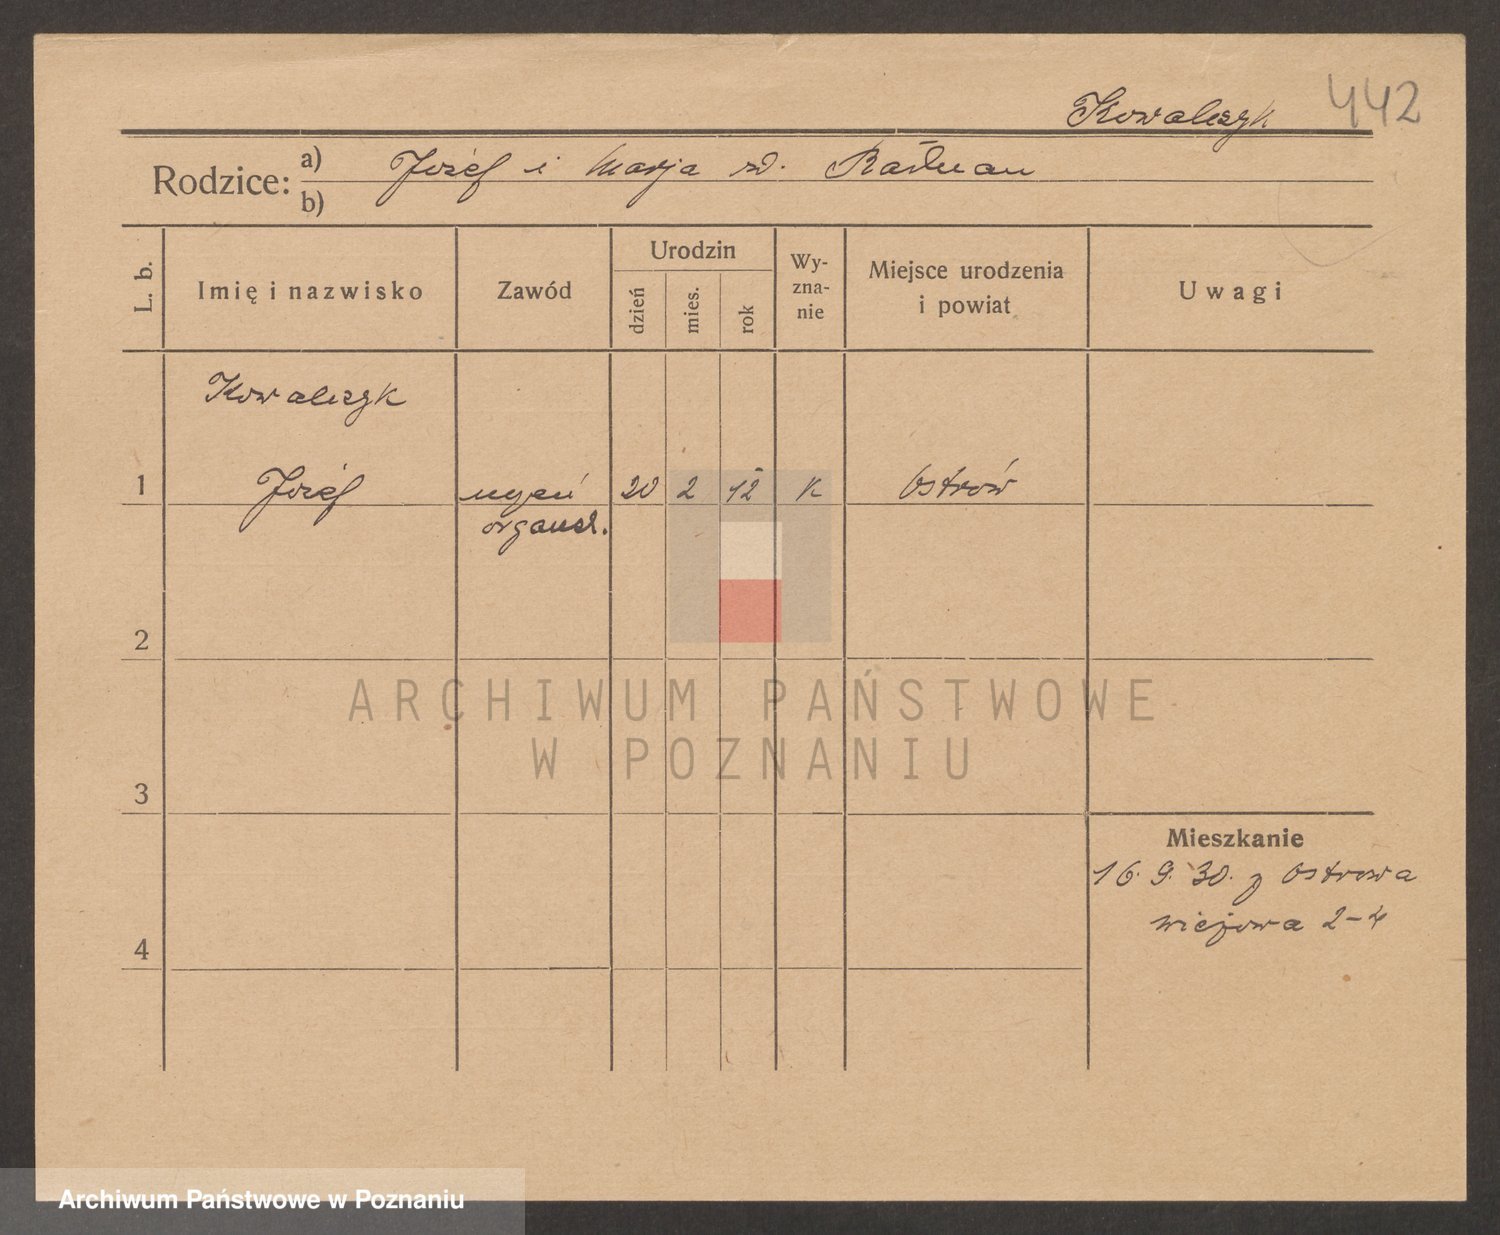 442
Kowalczyk
Rodzice: a) Józef i Marja zd.
b)
L. b.
Imię i nazwisko
Zawód
Urodzin
dzień
mies.
rok
Wy-
zna-
nie
Miejsce urodzenia
i powiat
Uwagi
Kowalczyk
1 Józef uczeń 20 2 12 k Ostrów
2
3
4
Mieszkanie
16. 9. 30. z Ostrowa
2-4
ARCHIWUM PAŃSTWOWE
W POZNANIU
Archiwum Państwowe w Poznaniu